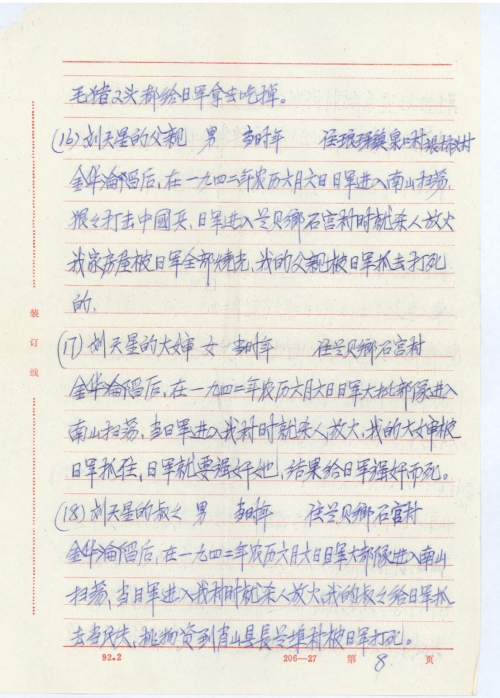 毛猪2头都给日军拿去吃掉。
(16)刘天星的父親 男 当时年 住琅琊鎮泉口村
金华淪陷后,在一九四二年农历六月六日日军进入南山扫荡,
狠々打击中國兵,日军进入兰贝鄉石宫村时就杀人放火
我家房屋被日军全部燒光,我的父親被日军抓去打死
的.
(17)刘天星的大婶 女 当时年 住兰贝鄉石宫村
金华淪陷后,在一九四二年农历六月六日日军大批部隊进入
南山扫荡,当日军进入我村时就杀人放火,我的大婶被
日军抓住,日军就要强奸她,结果给日军强奸而死。
(18)刘天星的叔々 男 当时年 住兰贝鄉石宫村
金华淪陷后,在一九四二年农历六月六日日军大部隊进入南山
扫荡,当日军进入我村时就杀人放火,我的叔々给日军抓
去当民夫,挑物资到 山县長 埠村被日军打死。
装订线
92.2 206—27 第 8. 页